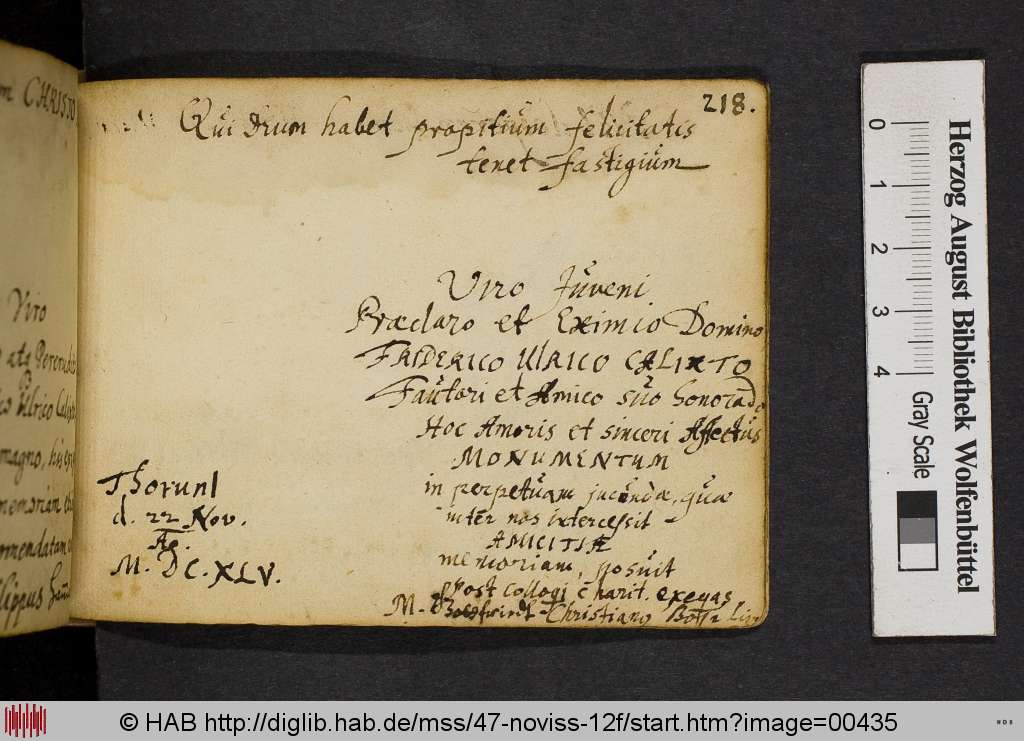 m CHRISTO
Viro
Ulrico Calixt
magno, his
memoriam
218.
Qui Deum habet propitium felicitatis
tenet fastigium
Viro Juveni
Præclaro et Eximio Domino
FRIDERICO ULRICO CALIXTO
Fautori et Amico suo honorado
Hoc Amoris et sinceri Affectus
MONUMENTUM
in perpetuam jucundæ, quæ
inter nos intercessit
AMICITIÆ
memoriam, posuit
post colloqi charit. exegas
M. Christiano
Thoruni
d. 22 Nov.
Ao.
M. DC. XLV.
Herzog August Bibliothek Wolfenbüttel
0 1 2 3 4 Gray Scale
© HAB http://diglib.hab.de/mss/47-noviss-12f/start.htm?image=00435